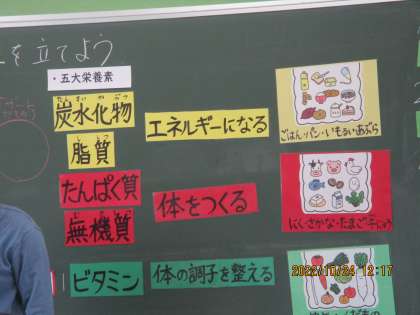 を立てよう
・五大栄養素
炭水化物
エネルギーになる
脂質
ごはん・パン・いもるい・あぶら
たんぱく質
体をつくる
無機質
にく・さかな・たまご・牛にゅう
ビタミン
体の調子を整える
2022/10/24 12:17